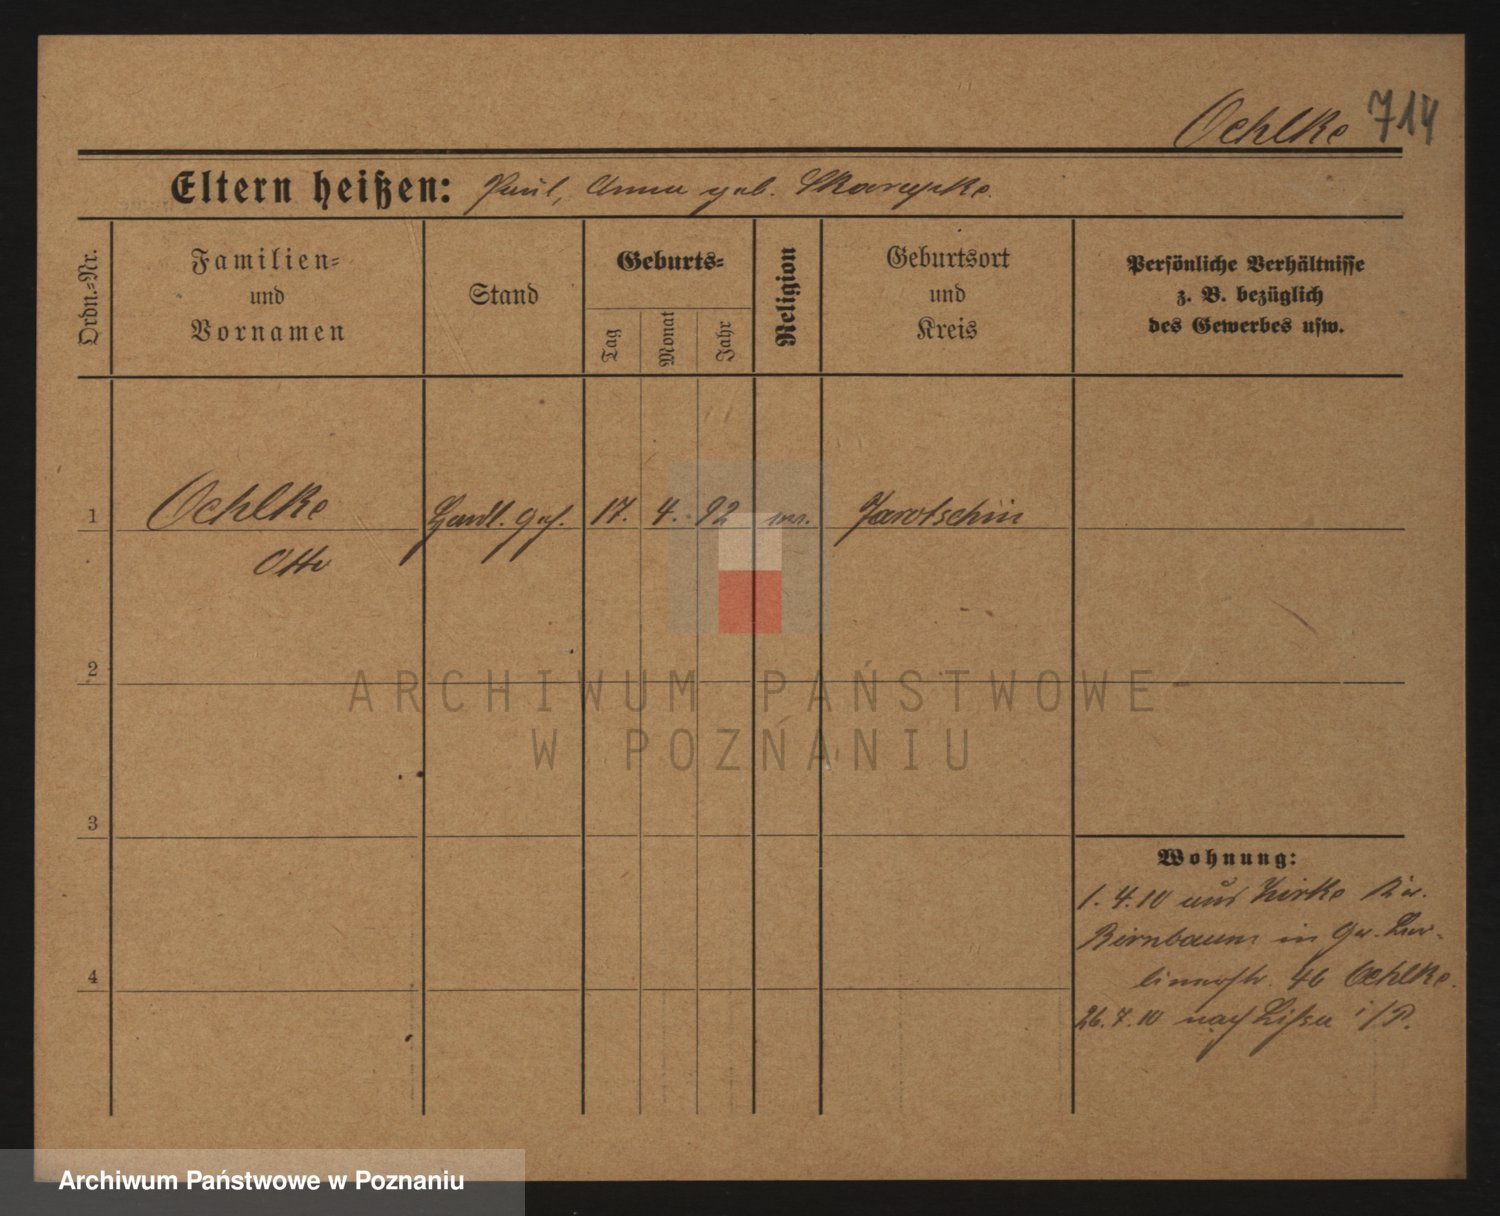 Oehlke 714
Eltern heißen: Paul, Anna geb. Skarupke.
Ordn.-Nr.
Familien-
und
Vornamen
Stand
Geburts-
Tag
Monat
Jahr
Religion
Geburtsort
und
Kreis
Persönliche Verhältnisse
z. B. bezüglich
des Gewerbes usw.
1 Oehlke Handl. Geh. 17. 4. 92 Jarotschin
Otto
2
3
4
Wohnung:
1. 4. 10 aus Zirke Kr.
Birnbaum in
46 Oehlke.
26. 7. 10 nach Lissa i/P.
ARCHIWUM PAŃSTWOWE
W POZNANIU
Archiwum Państwowe w Poznaniu